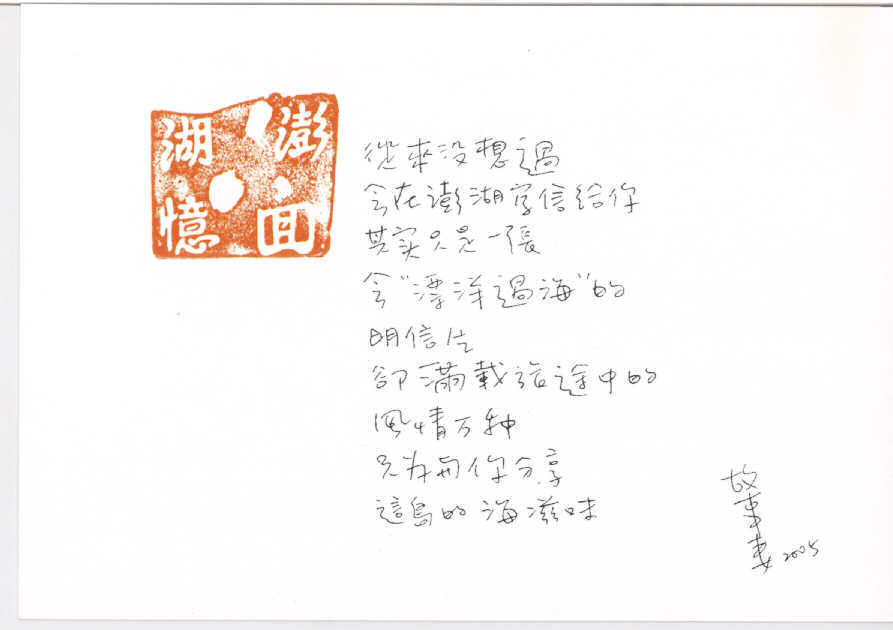 澎湖
回憶
從來没想過
会在澎湖写信給你
其实只是一張
会“漂洋過海”的
明信片
卻滿載旅途中的
風情万种
只为与你分享
這島的海滋味
故事妻 2005